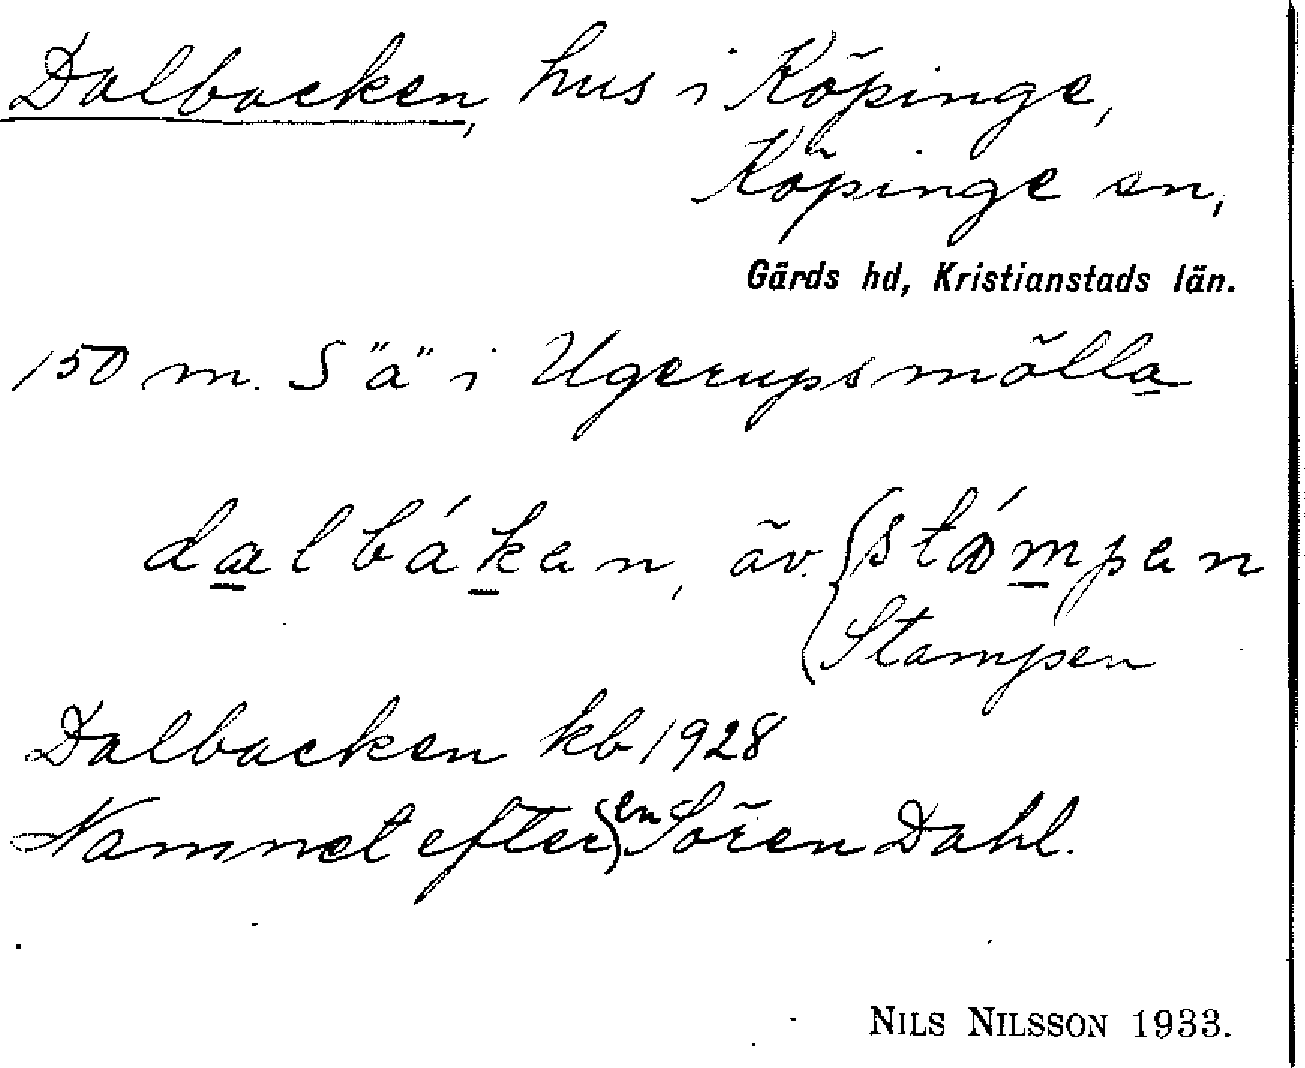 Dalbacken, hus i Köpinge,
Köpinge sn,
Gärds hd, Kristianstads län.
150 m. S "ä" i Ugerupsmölla
dalbákan, äv. stámpan
Stampen
Dalbacken kb 1928
Namnet efter en Sören Dahl.
NILS NILSSON 1933.